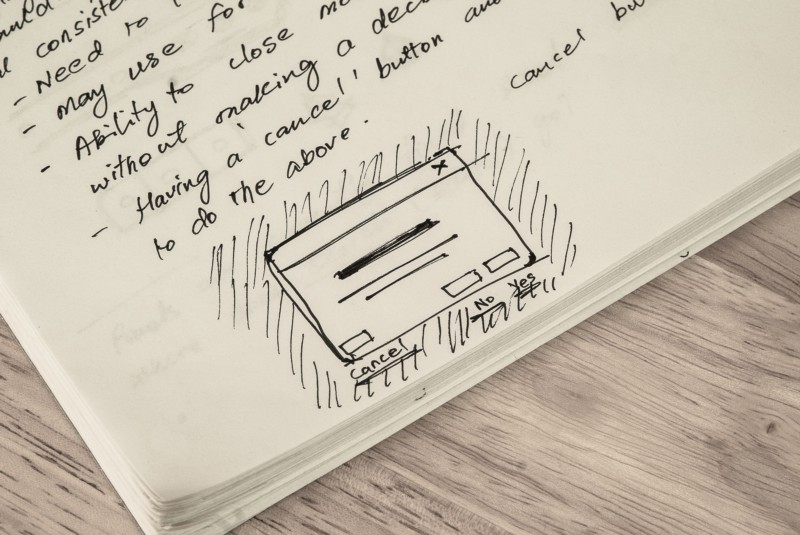 consisten
- Need to
- may use for
- Ability to close mo
without making a dec
- Having a 'cancel' button an
to do the above.
cancel bu
X
No Yes
Cancel